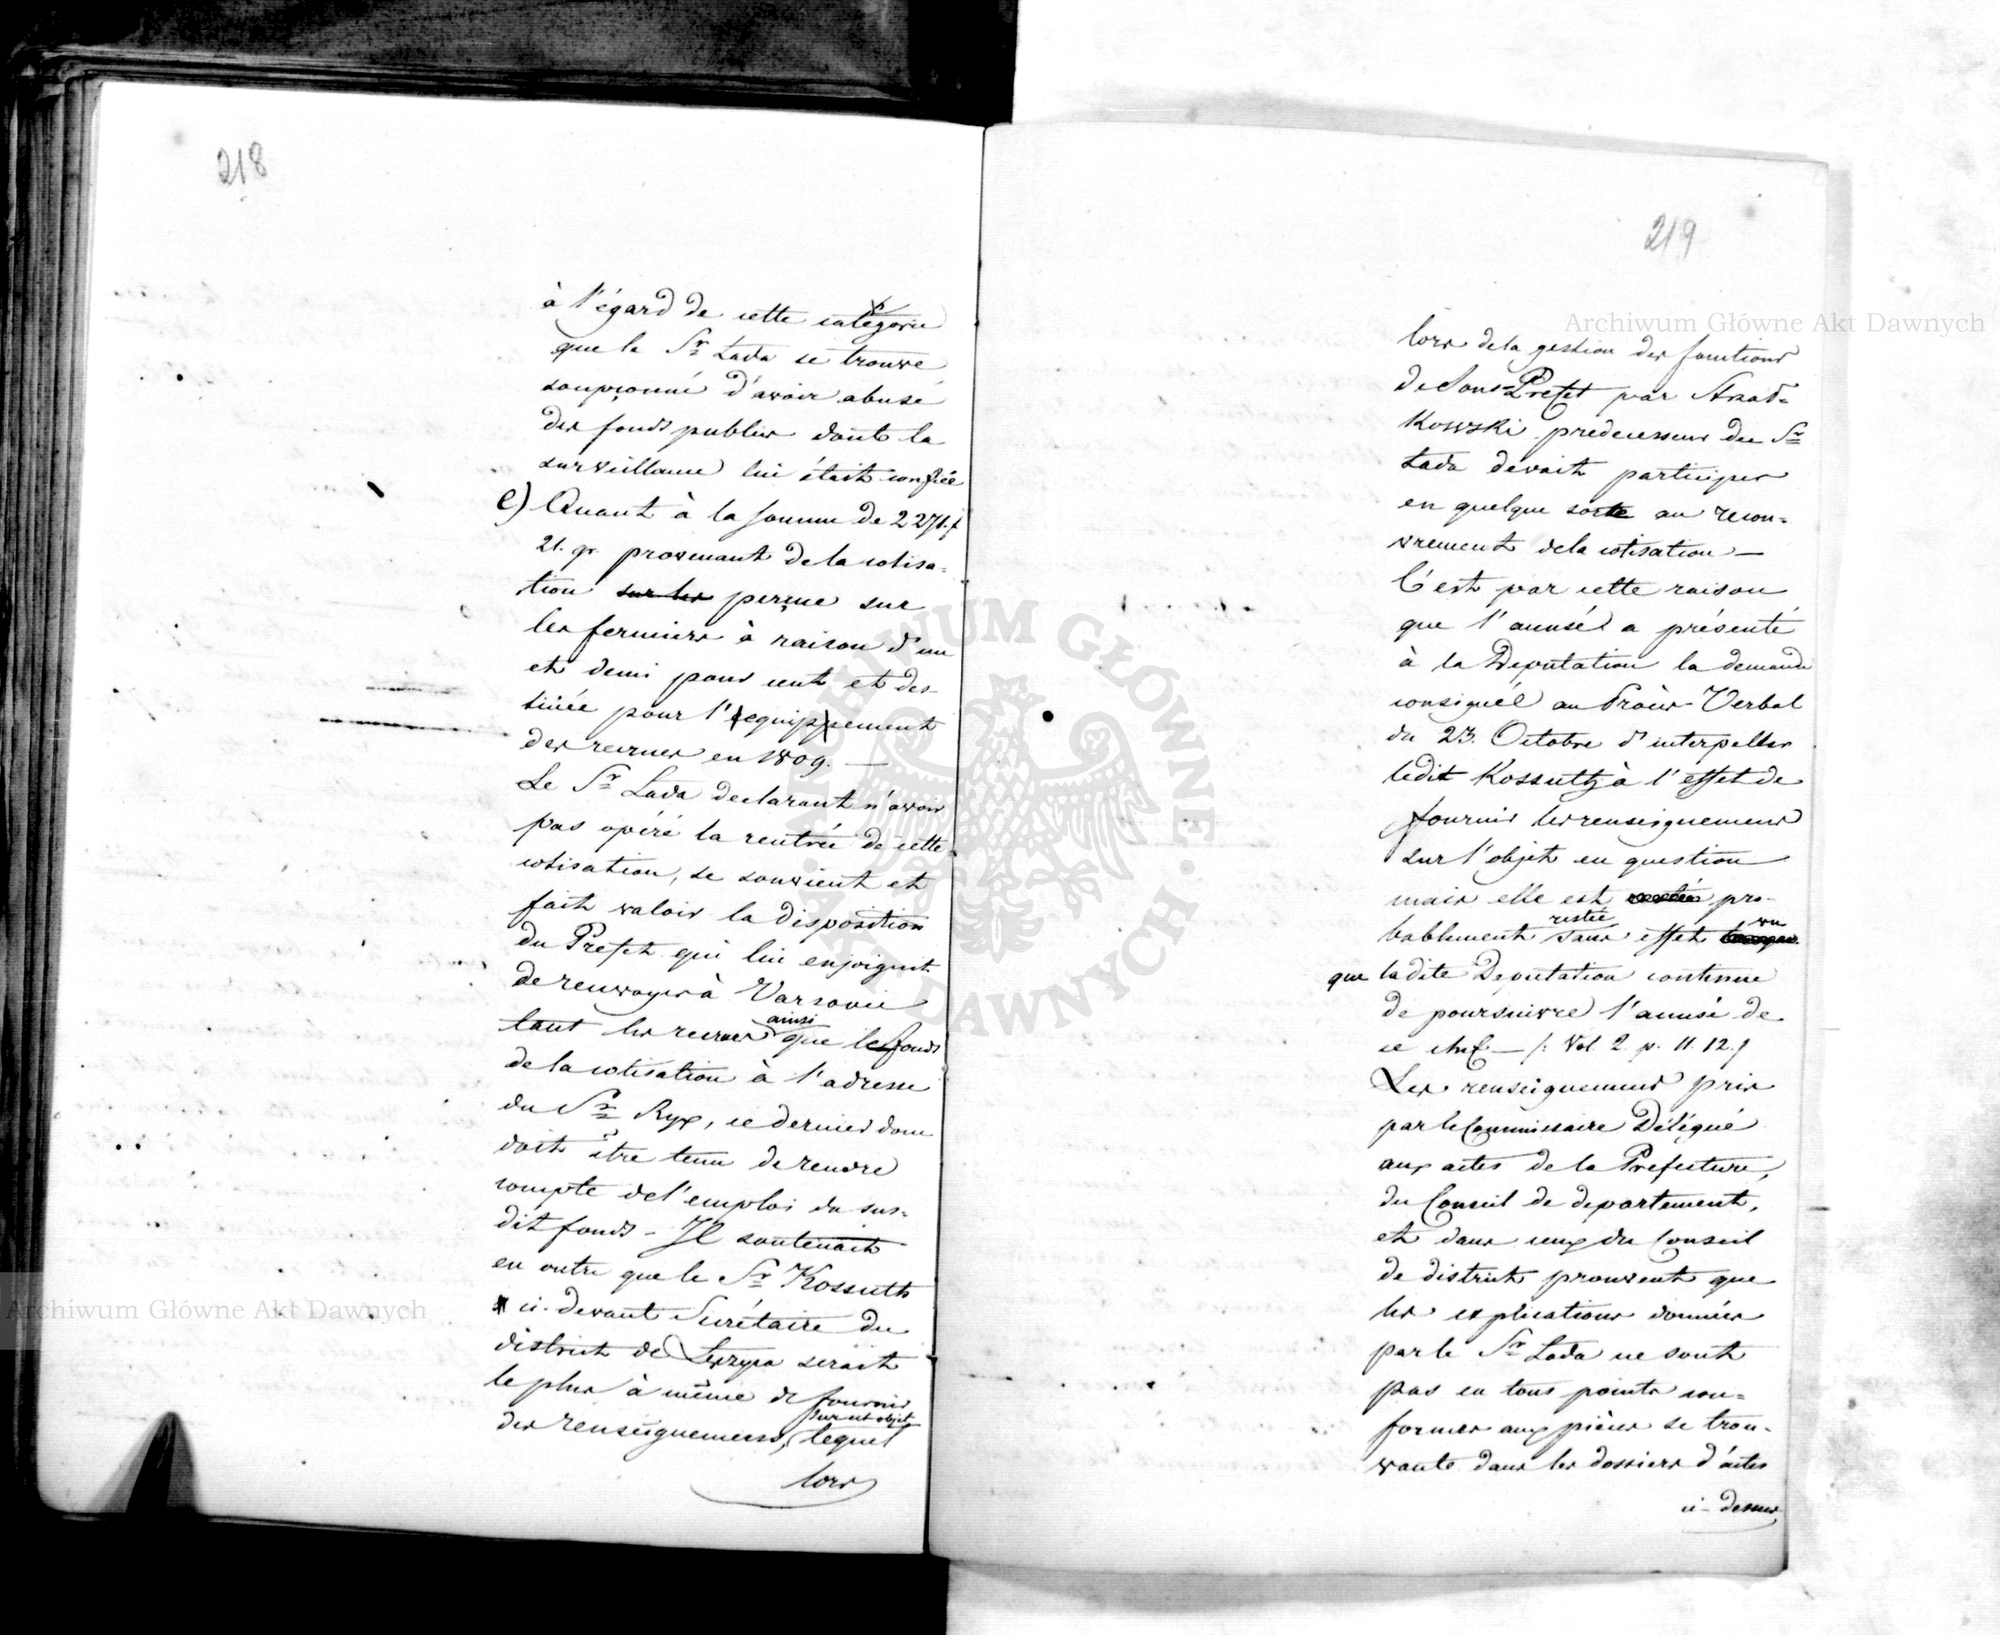 218
à l'égard de cette categorie
que le Sr Lada se trouve
soupçonné d'avoir abusé
des fonds publics dont la
surveillance lui était confiée
e) Quant à la somme de 2271. f
21. gr. provenant de la cotisa-
tion sur les perçue sur
les fermiers à raison d'un
et demi pour cent et des-
tinée pour l'equippement
des recrues en 1809. —
Le Sr Lada declarant n'avoir
pas opéré la rentrée de cette
cotisation, se souvient et
fait valoir la disposition
du Prefet qui lui enjoignit
de renvoyer à Varsovie
ainsi
tant les recrues que les fonds
de la cotisation à l'adresse
du Sr Ryx, ce dernier donc
doit être tenu de rendre
compte de l'emploi du sus-
dit fonds - Il soutenait
en outre que le Sr Kossuth
ci-devant Secrétaire du
district de serait
le plus à même de fournir
sur cet objet
des renseignemens, lequel
lors
219
lors de la gestion des fonctions
de Sous-Prefet par
Kowski predecesseur du Sr
Lada devait participer
en quelque sorte au recou-
vrement de la cotisation —
C'est par cette raison
que l'accusé a présenté
à la Deputation la demande
consignée au Procès-Verbal
du 23. Octobre d'interpeller
ledit Kossuth à l'effet de
fournir les renseignemens
sur l'objet en question
mais elle est pro-
restée vu
bablement sans effet
que la dite Deputation continue
de poursuivre l'accusé de
ce chef. — /: Vol 2. p. 11. 12. /
Les renseignemens pris
par le Commissaire Délégué
aux actes de la Prefecture,
du Conseil de departement,
et dans ceux du Conseil
de district prouvent que
les explications données
par le Sr Lada ne sont
pas en tous points con-
formes aux pièces se trou-
vants dans les dossiers d'actes
ci-dessus
Archiwum Główne Akt Dawnych
Archiwum Główne Akt Dawnych
ARCHIWUM GŁÓWNE AKT DAWNYCH